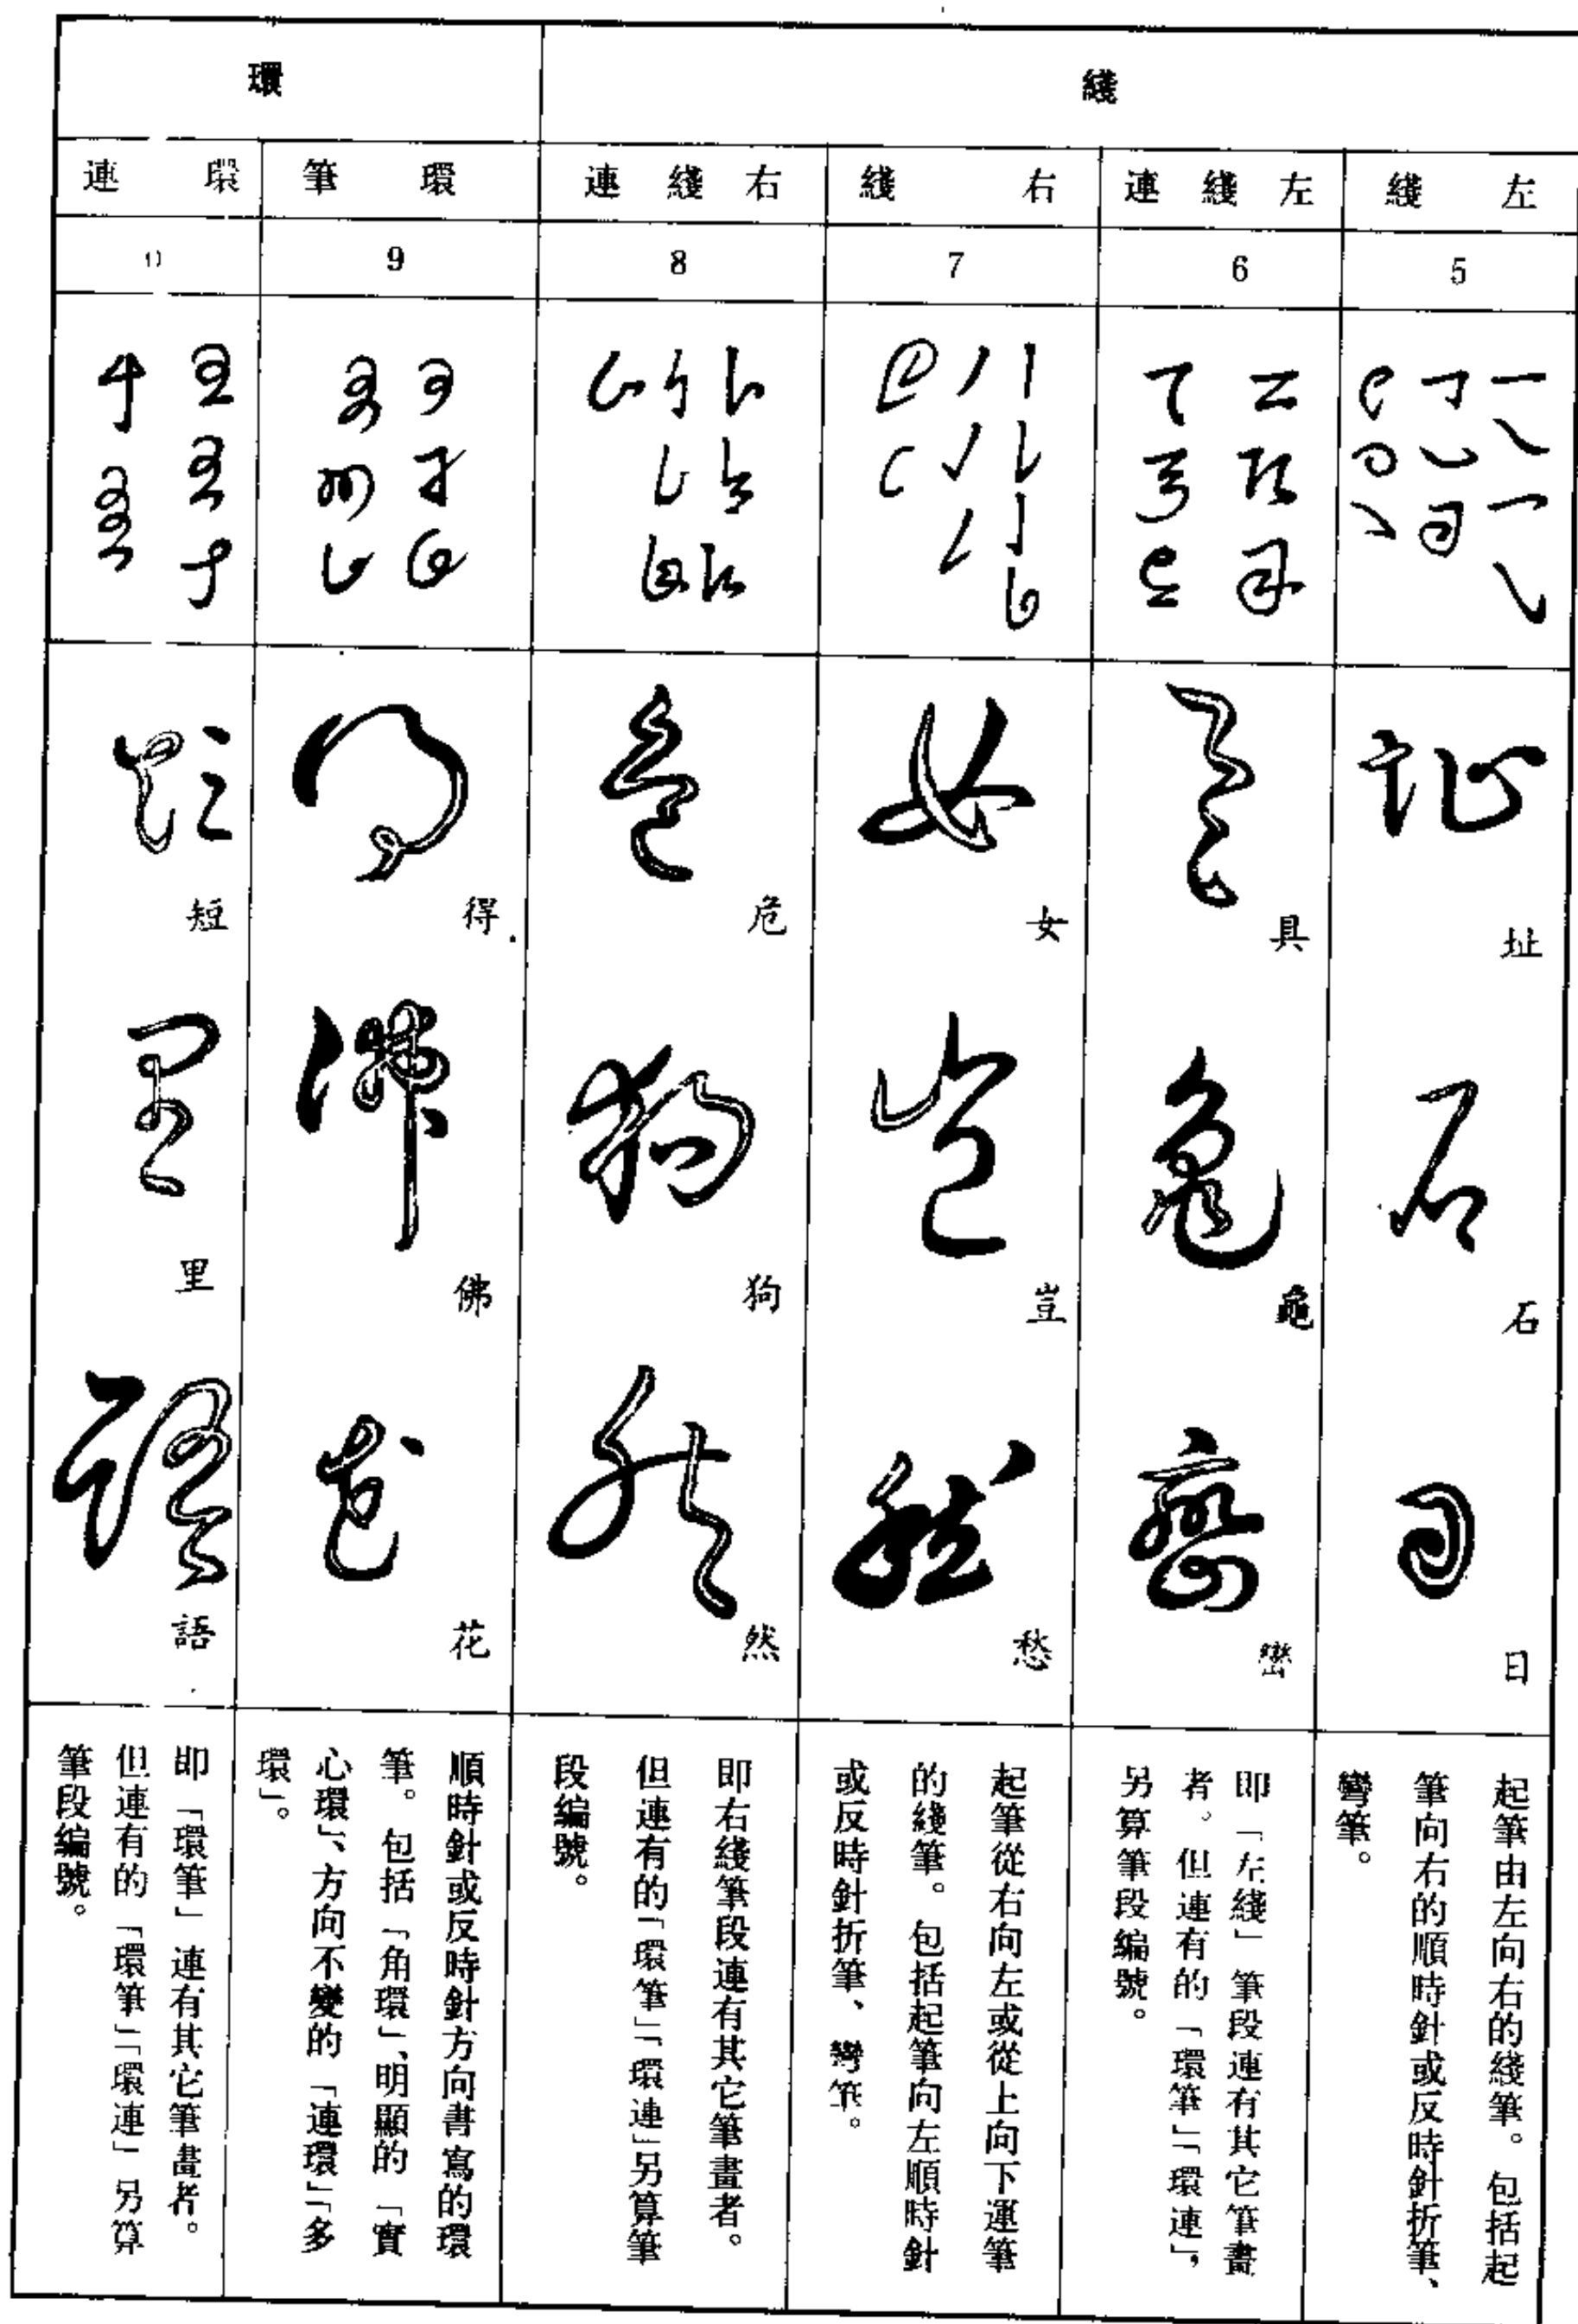 綫
環
左綫
左綫連
右綫
右綫連
環筆
環連
5
6
7
8
9
址
石
日
具
龜
巒
女
豈
愁
危
狗
然
得
佛
花
短
里
語
起筆由左向右的綫筆。包括起
筆向右的順時針或反時針折筆、
彎筆。
即「左綫」筆段連有其它筆畫
者。但連有的「環筆」「環連」，
另算筆段編號。
起筆從右向左或從上向下運筆
的綫筆。包括起筆向左順時針
或反時針折筆、彎筆。
即右綫筆段連有其它筆畫者。
但連有的「環筆」「環連」另算筆
段編號。
順時針或反時針方向書寫的環
筆。包括「角環」、明顯的「實
心環」、方向不變的「連環」「多
環」。
即「環筆」連有其它筆畫者。
但連有的「環筆」「環連」另算
筆段編號。